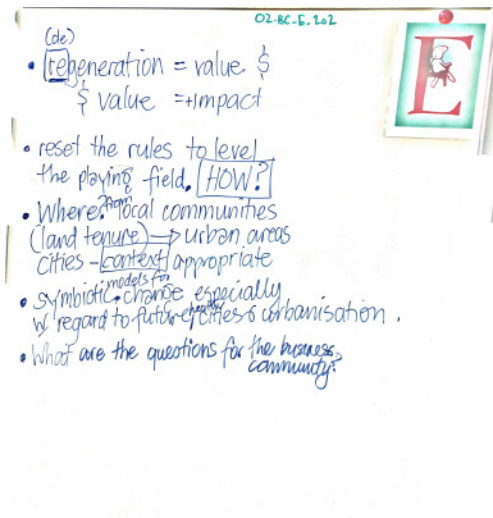 O2-BC-E.202
E
(de)
• regeneration = value $
$ value = +impact
• reset the rules to level
the playing field. HOW?
• Where? from local communities
(land tenure) → urban areas
cities - context appropriate
• symbiotic models for change especially
w/ regard to future healthy cities & urbanisation.
• What are the questions for the business
community?